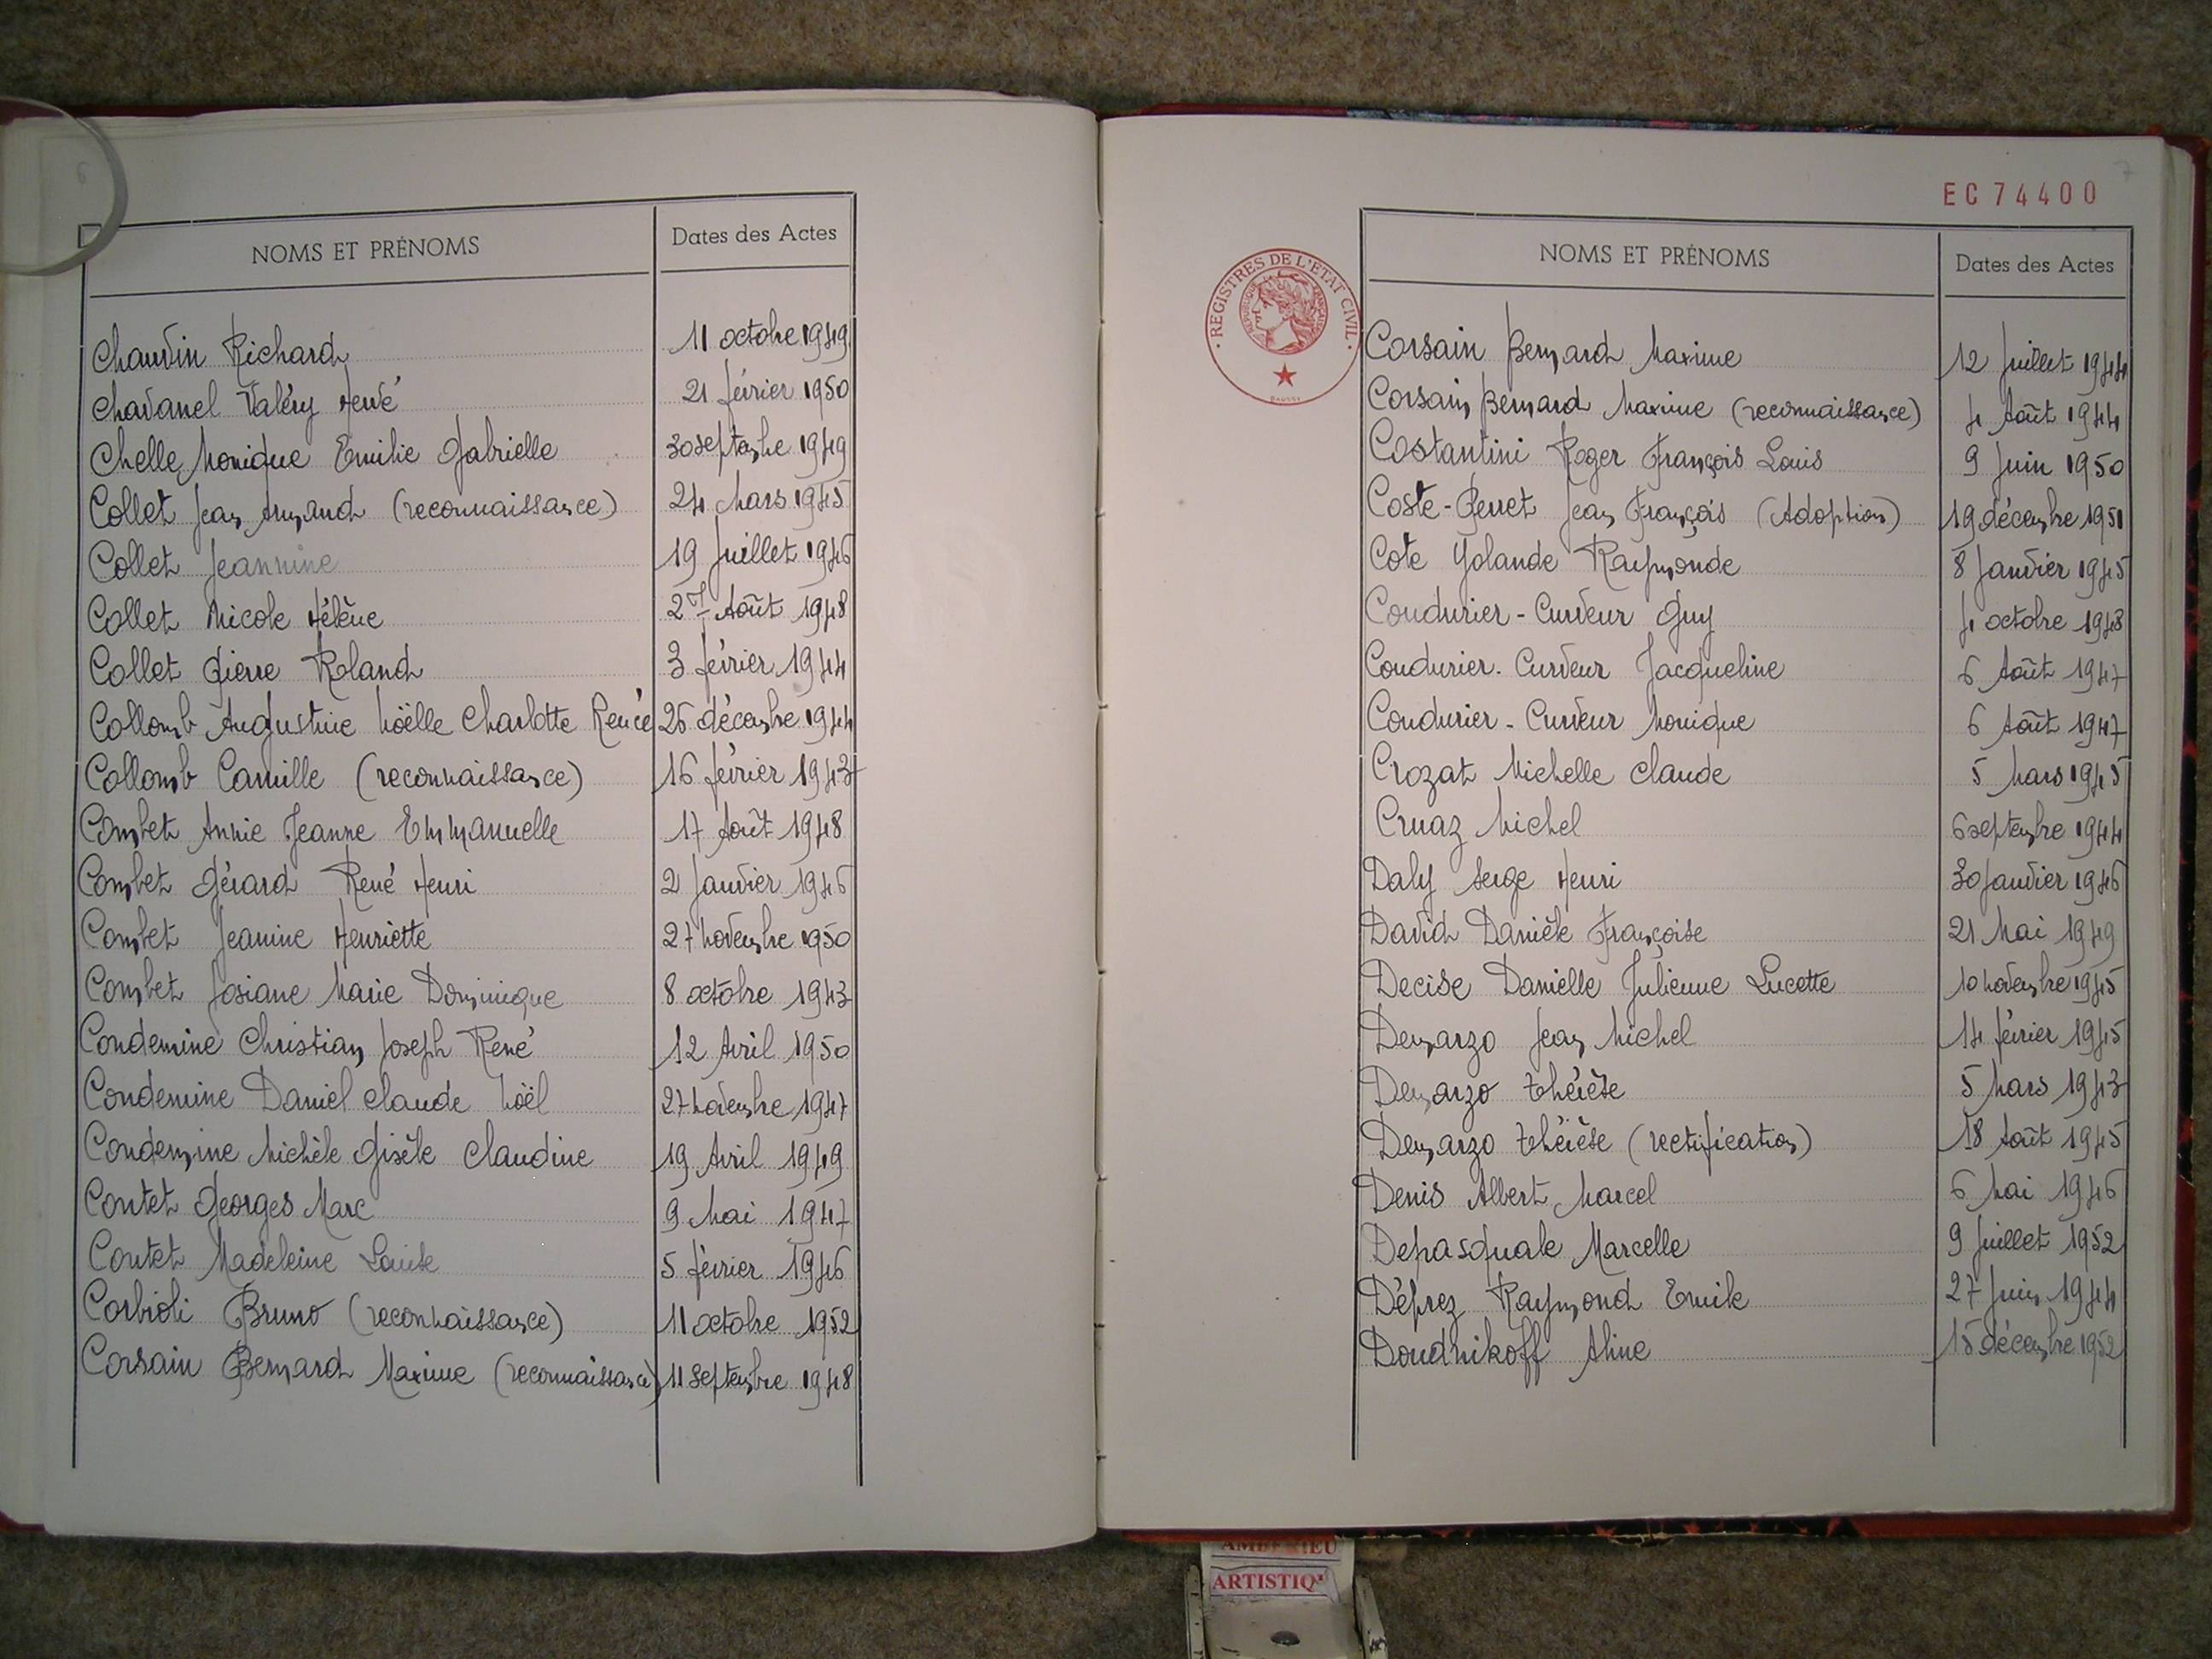 6
NOMS ET PRÉNOMS Dates des Actes
Chauvin Richard 11 octobre 1949
Chavanel Valéry Hervé 21 février 1950
Chelle Monique Emilie Gabrielle 30 septembre 1949
Collet Jean Armand (reconnaissance) 24 Mars 1945
Collet Jeannine 19 Juillet 1946
Collet Nicole Hélène 27 Août 1948
Collet Pierre Roland 3 février 1944
Collomb Augustine Noëlle Charlotte Renée 26 décembre 1944
Collomb Camille (reconnaissance) 16 février 1943
Combet Annie Jeanne Emmanuelle 17 Août 1948
Combet Gérard René Henri 2 Janvier 1946
Combet Jeanine Henriette 27 Novembre 1950
Combet Josiane Marie Dominique 8 octobre 1943
Condemine Christian Joseph René 12 Avril 1950
Condemine Daniel Claude Noël 27 Novembre 1947
Condemine Michèle Gisèle Claudine 19 Avril 1949
Contet Georges Marc 9 Mai 1947
Contet Madeleine Louise 5 février 1946
Corbioli Bruno (reconnaissance) 11 octobre 1952
Corsain Bernard Maxime (reconnaissance) 11 Septembre 1948
7
EC 74400
REGISTRES DE L'ETAT CIVIL
REPUBLIQUE FRANÇAISE
NOMS ET PRÉNOMS Dates des Actes
Corsain Bernard Maxime 12 Juillet 1944
Corsain Bernard Maxime (reconnaissance) 4 Août 1944
Costantini Roger François Louis 9 Juin 1950
Coste-Perret Jean François (Adoption) 19 décembre 1951
Cote Yolande Raymonde 8 Janvier 1945
Coudurier-Curveur Guy 4 octobre 1948
Coudurier-Curveur Jacqueline 6 Août 1947
Coudurier-Curveur Monique 6 Août 1947
Crozat Michelle Claude 5 Mars 1945
Cruaz Michel 6 septembre 1944
Daly Serge Henri 30 Janvier 1946
David Danièle Françoise 21 Mai 1949
Decise Danielle Julienne Lucette 10 Novembre 1945
Demarzo Jean Michel 14 février 1945
Demarzo Thérèse 5 Mars 1943
Demarzo Thérèse (rectification) 18 Août 1945
Denis Albert Marcel 6 Mai 1946
Depasquale Marcelle 9 Juillet 1952
Déprez Raymond Emile 27 Juin 1944
Doudnikoff Aline 15 décembre 1952
AMBERIEU
ARTISTIQ